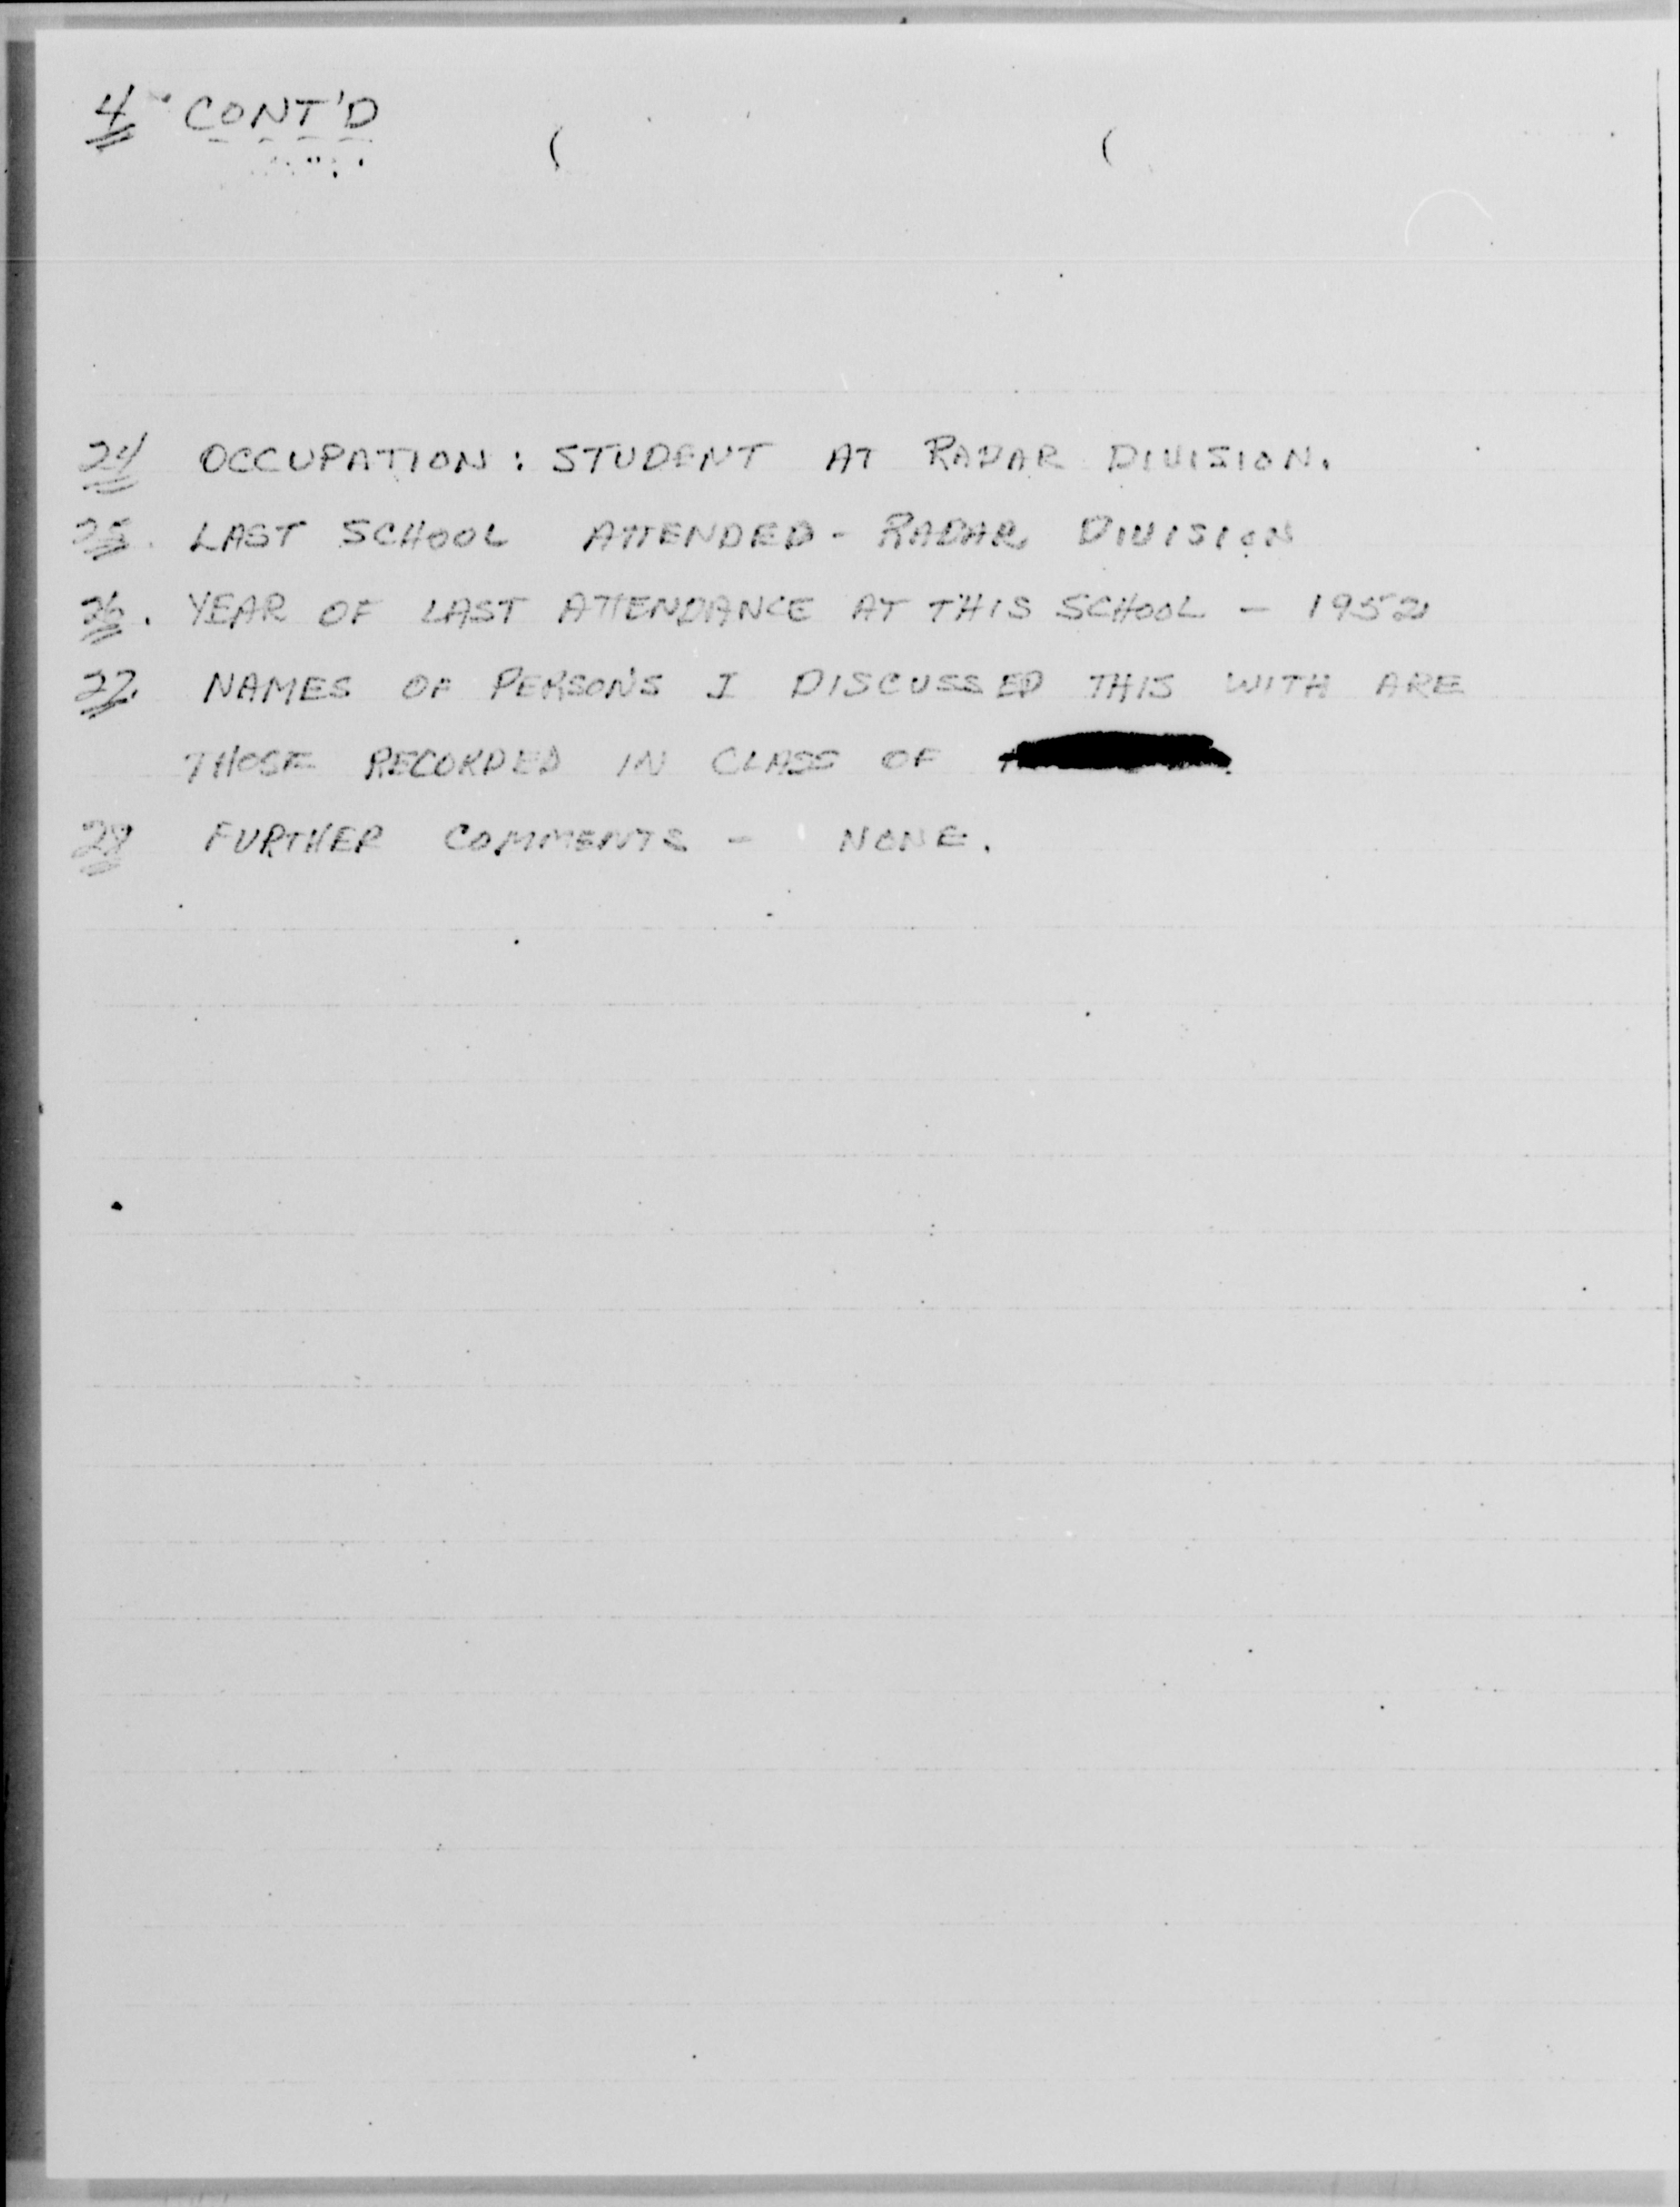 4 CONT'D
24 OCCUPATION: STUDENT AT RADAR DIVISION.
25. LAST SCHOOL ATTENDED - RADAR DIVISION
26. YEAR OF LAST ATTENDANCE AT THIS SCHOOL - 1952
27. NAMES OF PERSONS I DISCUSSED THIS WITH ARE
THOSE RECORDED IN CLASS OF
28 FURTHER COMMENTS - NONE.